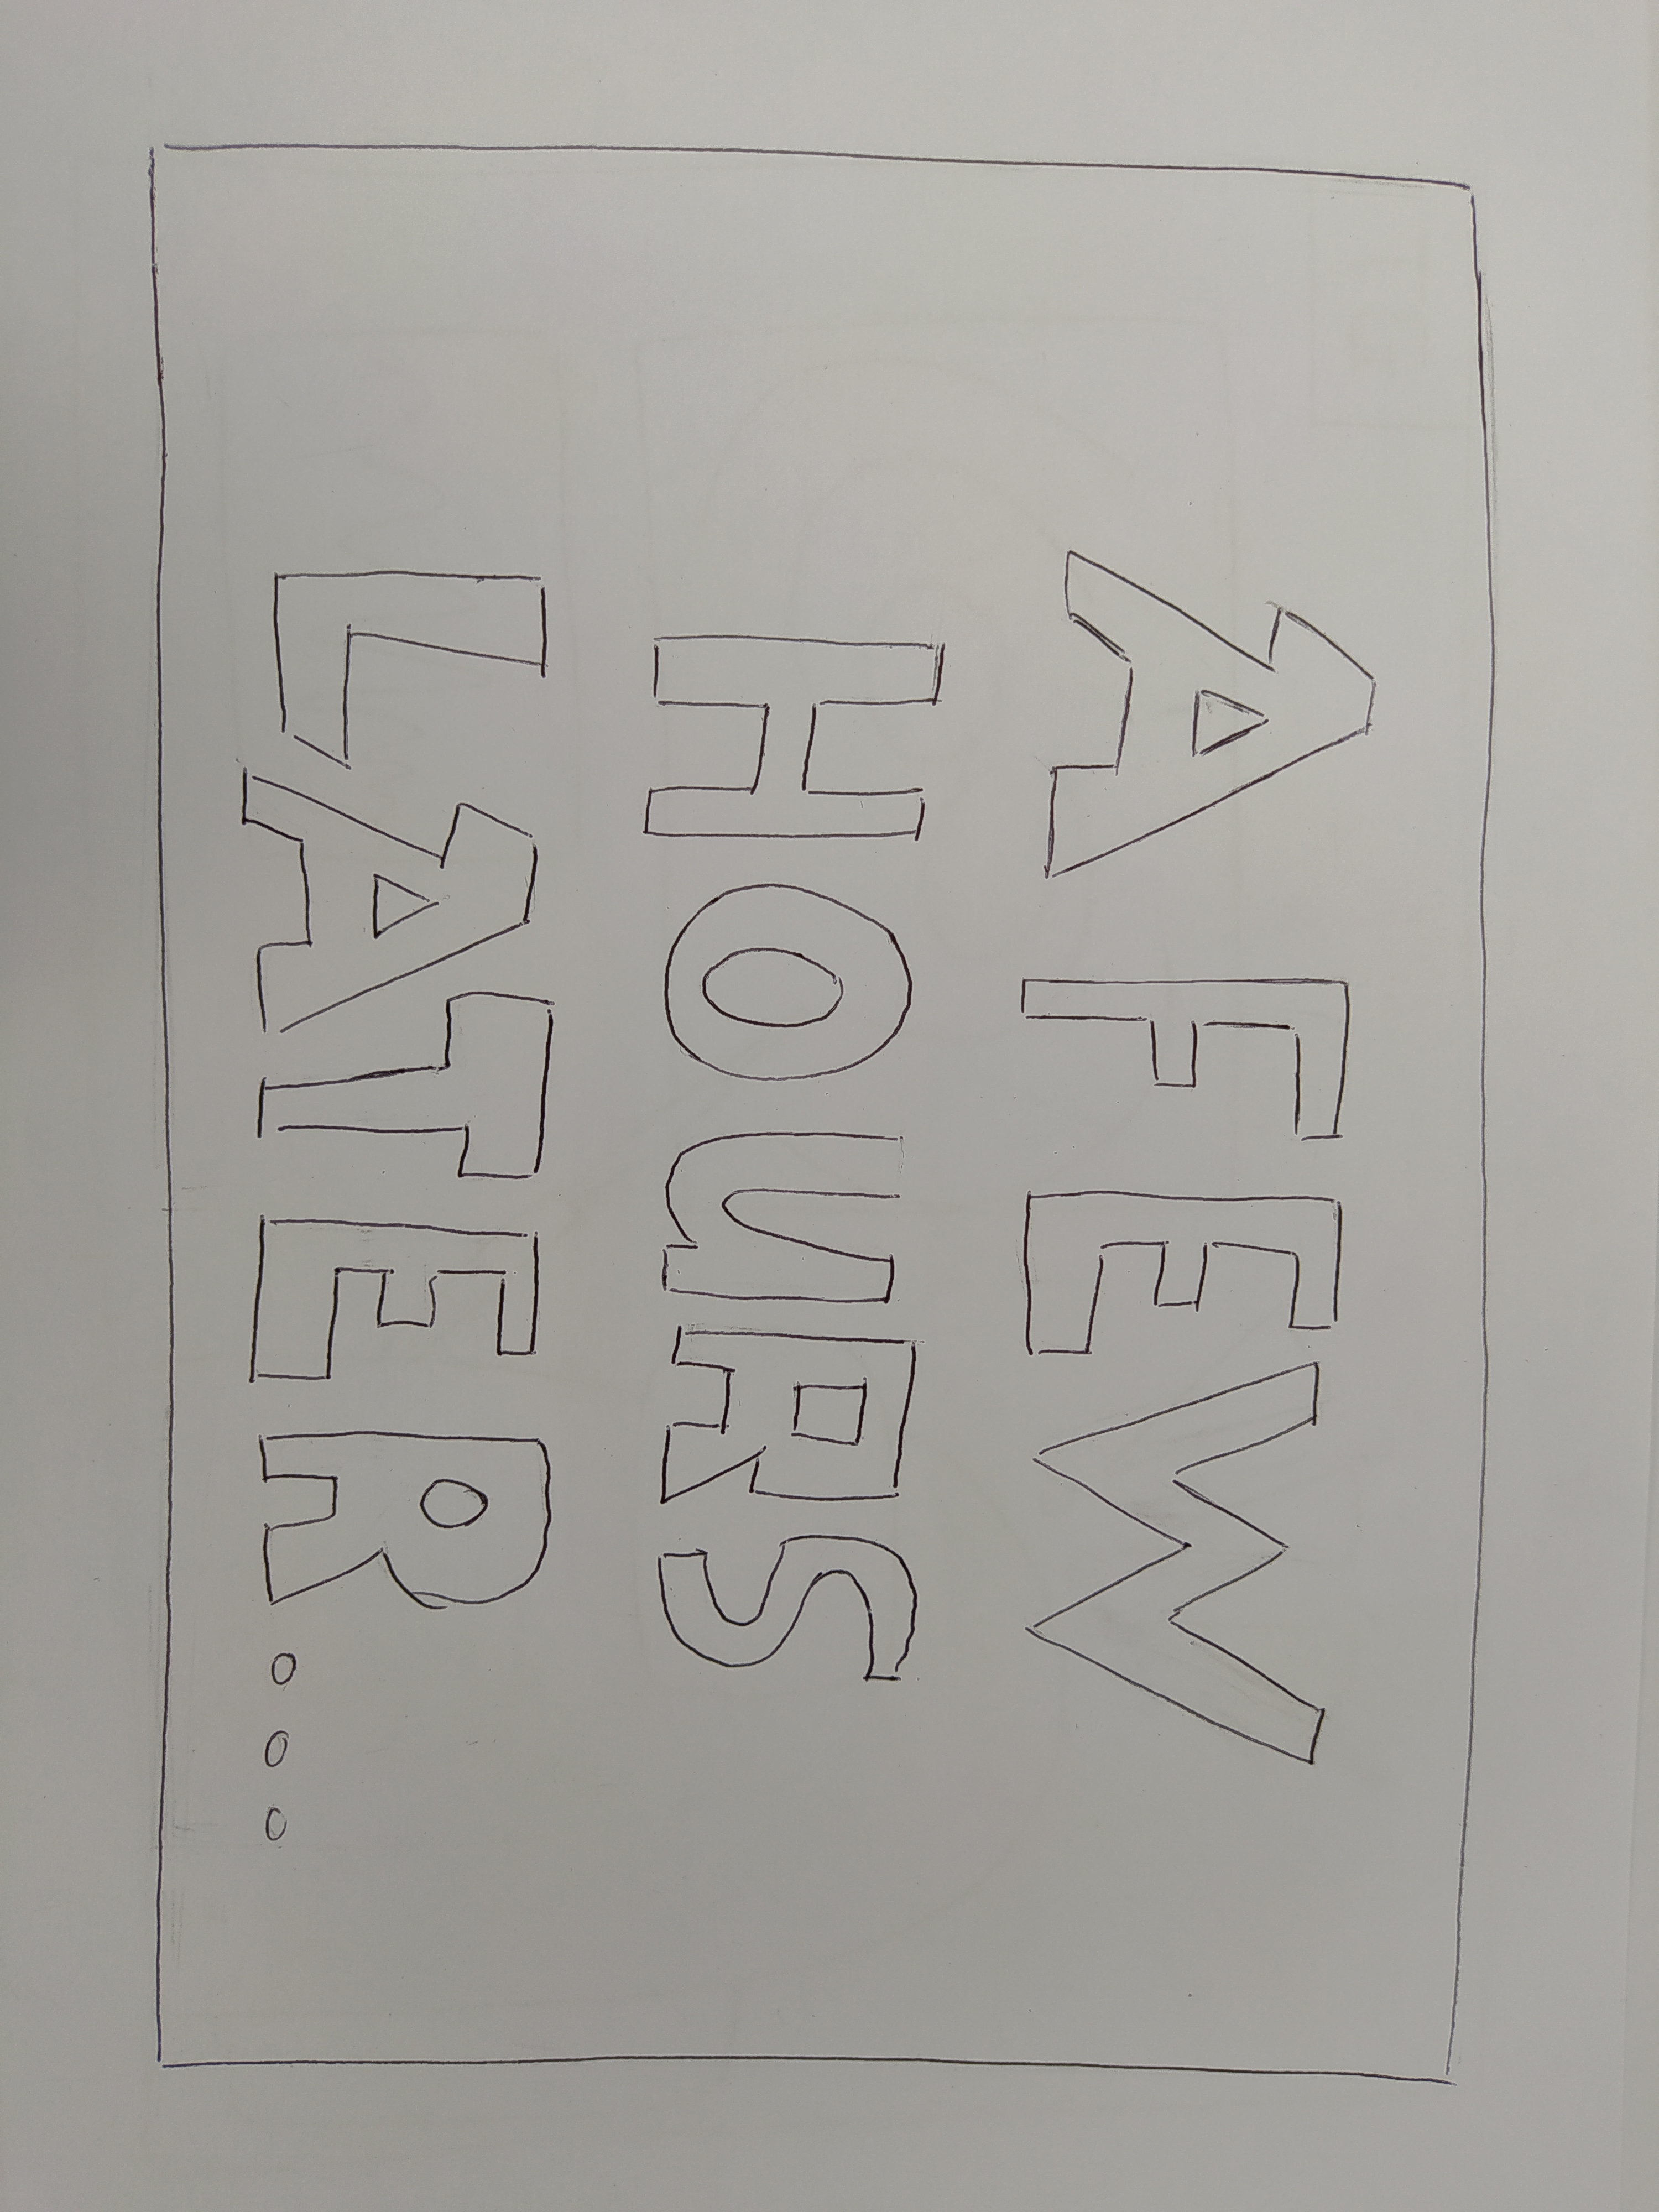 A FEW
HOURS
LATER...